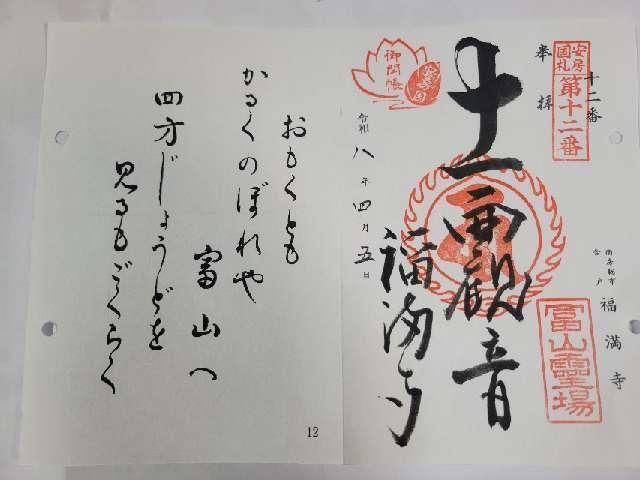 安房
国札
第十二番
十二番
奉拝
十一面観音
福満寺
南房総市
合戸
福満寺
富山霊場
御開帳
令和八年四月五日
おもくとも
かるくのぼれや
富山へ
四方じょうどを
見るもごくらく
12